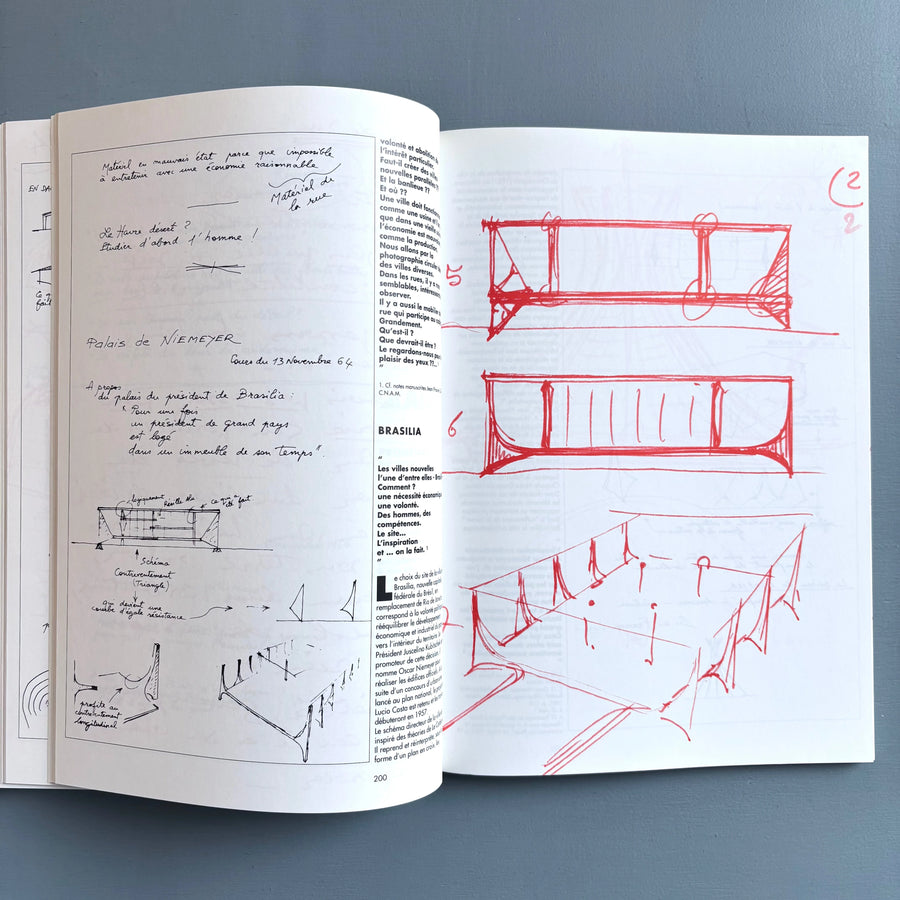 EN DA
Matériel en mauvais état parce que impossible
à entretenir avec une économie raisonnable
Matériel de
la rue
Le Havre désert ?
Etudier d'abord l'homme !
Palais de NIEMEYER
Cours du 13 Novembre 64
A propos
du palais du président de Brasilia :
"Pour une fois
un président de grand pays
est logé
dans un immeuble de son temps".
logiquement
Résille
ce qui a
été fait
Schéma
Contreventement
(Triangle)
qui devient une
courbe d'égale résistance
profité au
contreventement
longitudinal
volonté et abolition
l'intérêt particulier
Faut-il créer des villes
nouvelles parallèles ??
Et la banlieue ??
Et où ??
Une ville doit fonctionner
comme une usine et
que dans une vieille
l'économie est
comme la production.
Nous allons par la
photographie circuler
des villes diverses.
Dans les rues, il y a
semblables, intéressants
observer.
Il y a aussi le mobilier
rue qui participe au
Grandement.
Qu'est-il ?
Que devrait-il être ?
Le regardons-nous pour
plaisir des yeux ??...
"
1. Cf. notes manuscrites Jean
C.N.A.M.
BRASILIA
"
Les villes nouvelles
l'une d'entre elles - Bras
Comment ?
une nécessité économique
une volonté.
Des hommes, des
compétences.
Le site...
L'inspiration
et ... on la fait. 1
"
Le choix du site de la
Brasilia, nouvelle
fédérale du Brésil, en
remplacement de Rio de
correspond à la volonté
rééquilibrer le développement
économique et industriel du
vers l'intérieur du territoire.
Président Juscelino Kubitschek
promoteur de cette décision,
nomme Oscar Niemeyer pour
réaliser les édifices officiels.
suite d'un concours d'urbanisme
lancé au plan national, le
Lucio Costa est retenu et les
débuteront en 1957.
Le schéma directeur de la ville
inspiré des théories de la
Il reprend et réinterprète
forme d'un plan en croix,
200
2
2
5
6